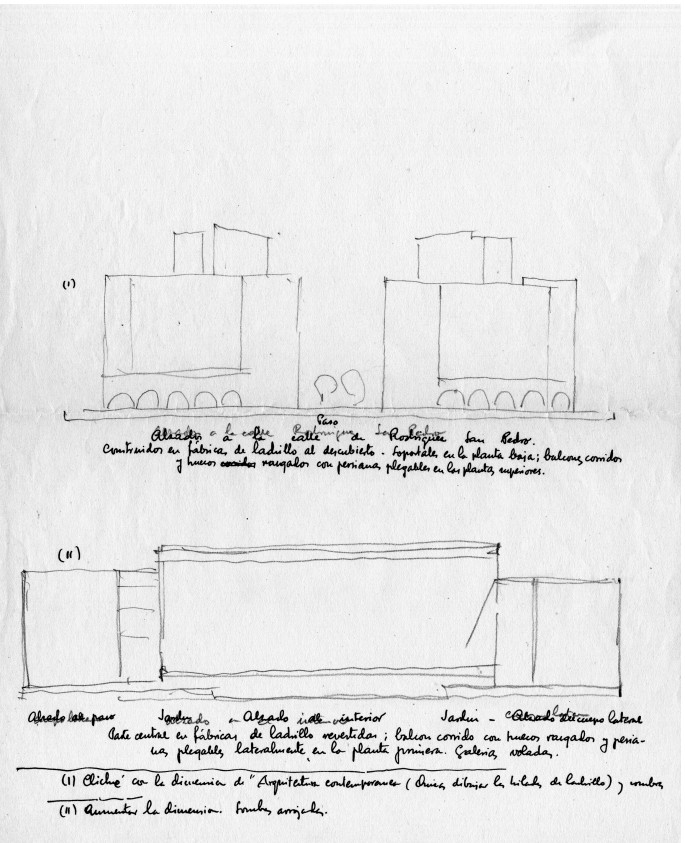 (I)
Paso
Alzados a la calle de Rodríguez San Pedro.
Construidos en fábrica de ladrillo al descubierto. Soportales en la planta baja; balcones corridos
y huecos rasgados con persianas plegables en las plantas superiores.
(II)
Alzado paso Jardín Alzado interior Jardín - Alzado del cuerpo lateral
Parte central en fábricas de ladrillo revestidas; balcon corrido con huecos rasgados y persia-
nas plegables lateralmente en la planta primera. Galerias voladas.
(I) Cliché con la dimension de "Arquitectura contemporanea ( dibujar las hiladas de ladrillo) y sombras
(II) Aumentar la dimension. Sombras arrojadas.